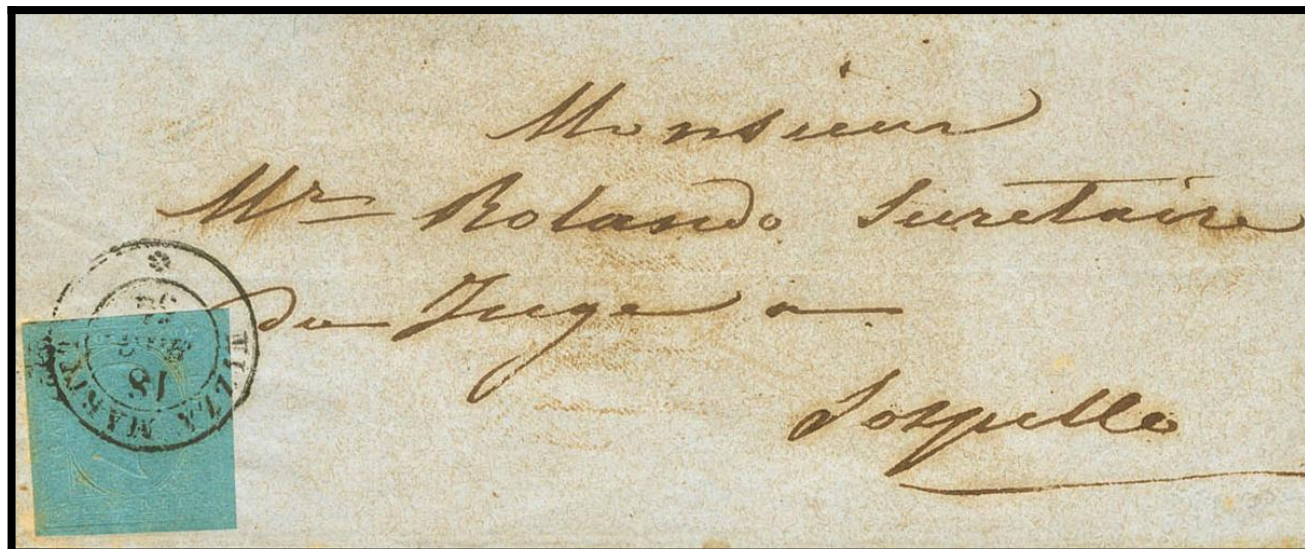 Monsieur
Mr Rolando Secretaire
du Juge a
Sospello
NIZZA MARITT
18